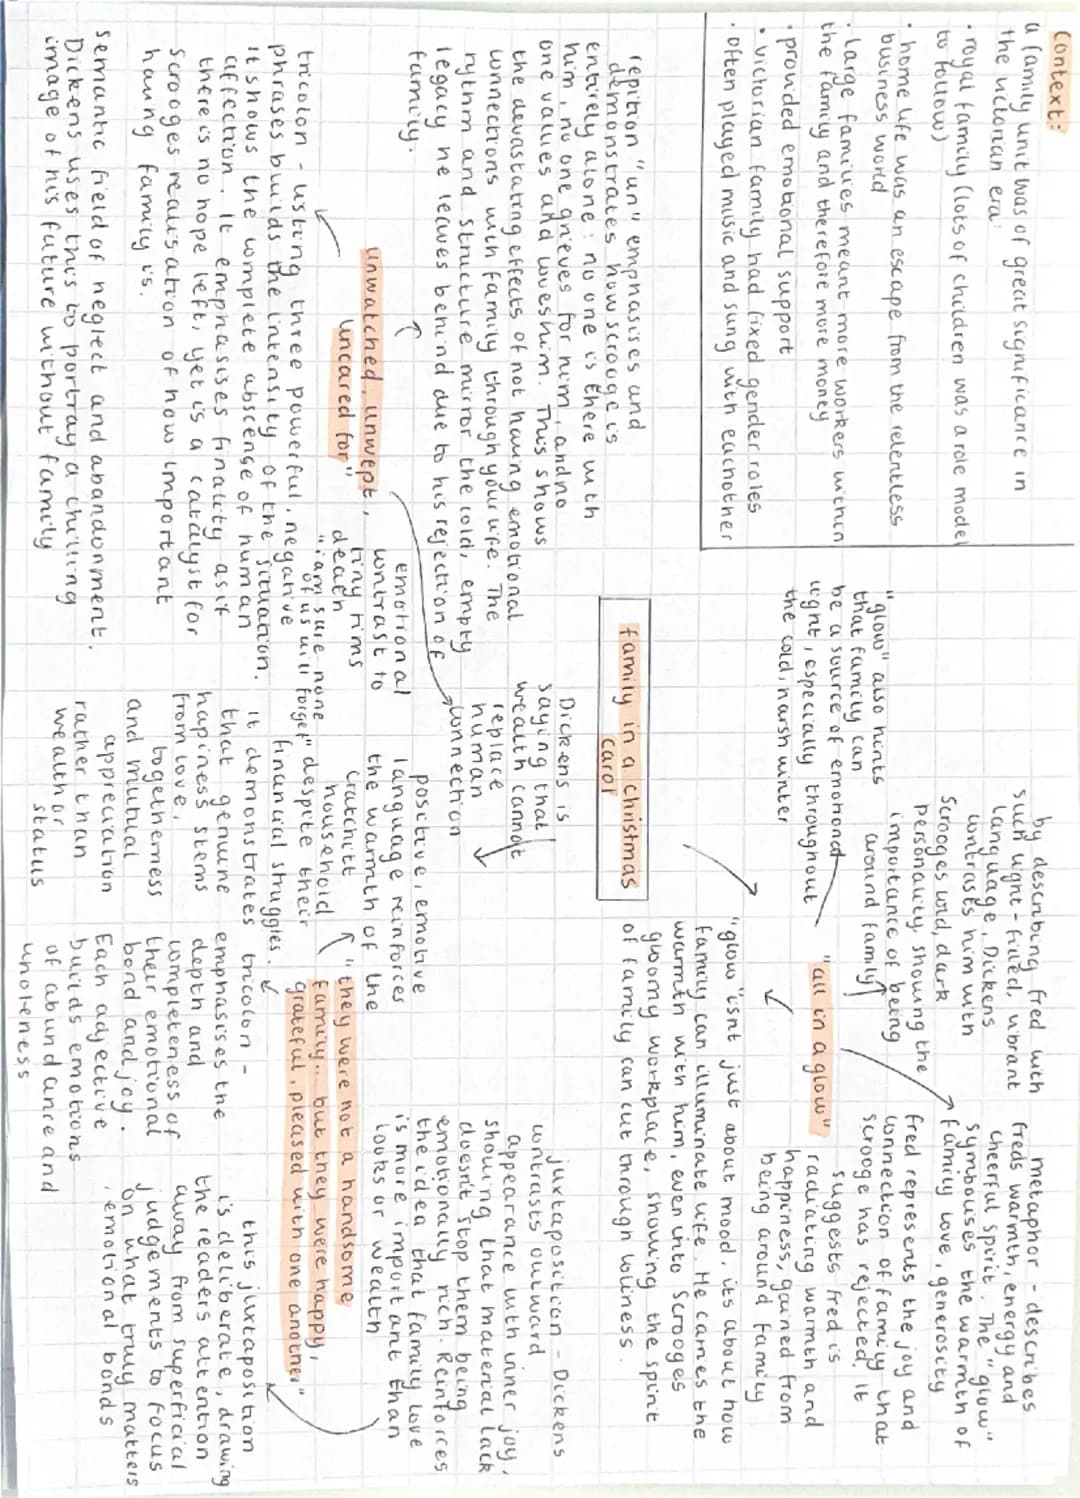 Context:
a family unit was of great significance in
the victorian era:
· royal family (lots of children was a role model
to follow)
· home life was an escape from the relentless
business world
· large families meant more workers within
the family and therefore more money
· provided emotional support
· victorian family had fixed gender roles
· often played music and sung with eachother
by describing fred with
such light-filled, vibrant
language, Dickens
contrasts him with
Scrooges cold, dark
personality showing the
importance of being
around family
metaphor - describes
freds warmth, energy and
cheerful spirit. The "glow"
symbolises the warmth of
family love, generosity
fred represents the joy and
connection of family that
scrooge has rejected. it
suggests fred is
radiating warmth and
happiness, gained from
being around family
"glow" also hints
that family can
be a source of emotional
light, especially throughout
the cold, harsh winter
"all in a glow"
"glow" isnt just about mood, its about how
family can illuminate life. He carries the
warmth with him, even into Scrooges
gloomy workplace, showing the spirit
of family can cut through coliness.
family in a christmas
carol
repition "un" emphasises and
demonstrates how scrooge is
entirely alone: no one is there with
him, no one grieves for him, and no
one values and loves him. This shows
the devastating effects of not having emotional
connections with family through your life. The
rythm and structure mirror the cold, empty
legacy he leaves behind due to his rejection of
family.
Dickens is
saying that
wealth cannot
replace
human
connection
unwatched, unwept,
uncared for"
emotional
contrast to
tiny tims
death
"i am sure none
of us will forget"
tricolon - listing three powerful, negative
phrases builds the intensity of the situation.
It shows the complete abscense of human
affection. It emphasises finality as if
there is no hope left, yet is a catalyst for
Scrooges realisation of how important
having family is.
semantic field of neglect and abandonment.
Dickens uses this to portray a chilling
image of his future without family
positive, emotive
language reinforces
the warmth of the
cratchitt
household
despite their
financial struggles.
It demonstrates
that genuine
hapiness stems
from love,
togetherness
and mutual
appreciation
rather than
wealth or
status
"they were not a handsome
family... but they were happy,
grateful, pleased with one another"
juxtaposition - Dickens
contrasts outward
appearance with inner joy,
showing that material lack
doesn't stop them being
emotionally rich. Reinforces
the idea that family love
is more important than
looks or wealth
tricolon -
emphasises the
depth and
completeness of
their emotional
bond and joy.
Each adjective
builds emotions
of abundance and
wholeness
this juxtaposition
is deliberate, drawing
the readers attention
away from superficial
judgements to focus
on what truly matters
, emotional bonds